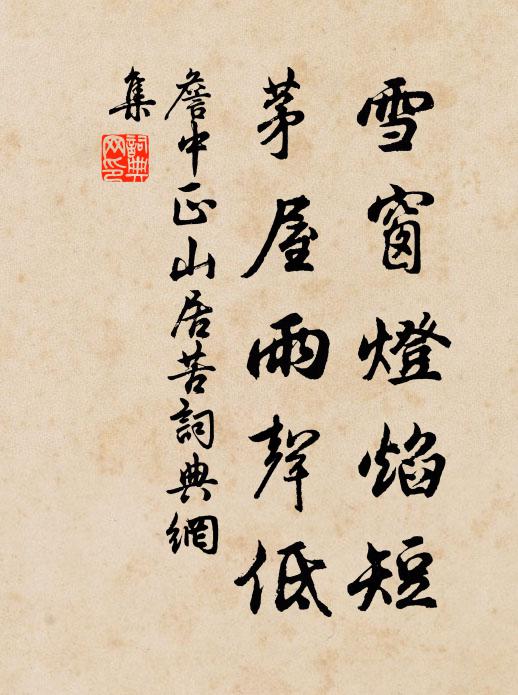 雪窗燈焰短
茅屋雨聲低
詹中正山居苦詞典網
集
詞典
网印